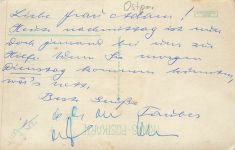 Ostpr.
Liebe Frau Adam!
Heute nachmittag ist
doch jemand bei uns zur
Hilfe, wenn Sie morgen
Dienstag kommen könnten,
wär's nett.
Beste Grüße
Tauber
POSTKARTE